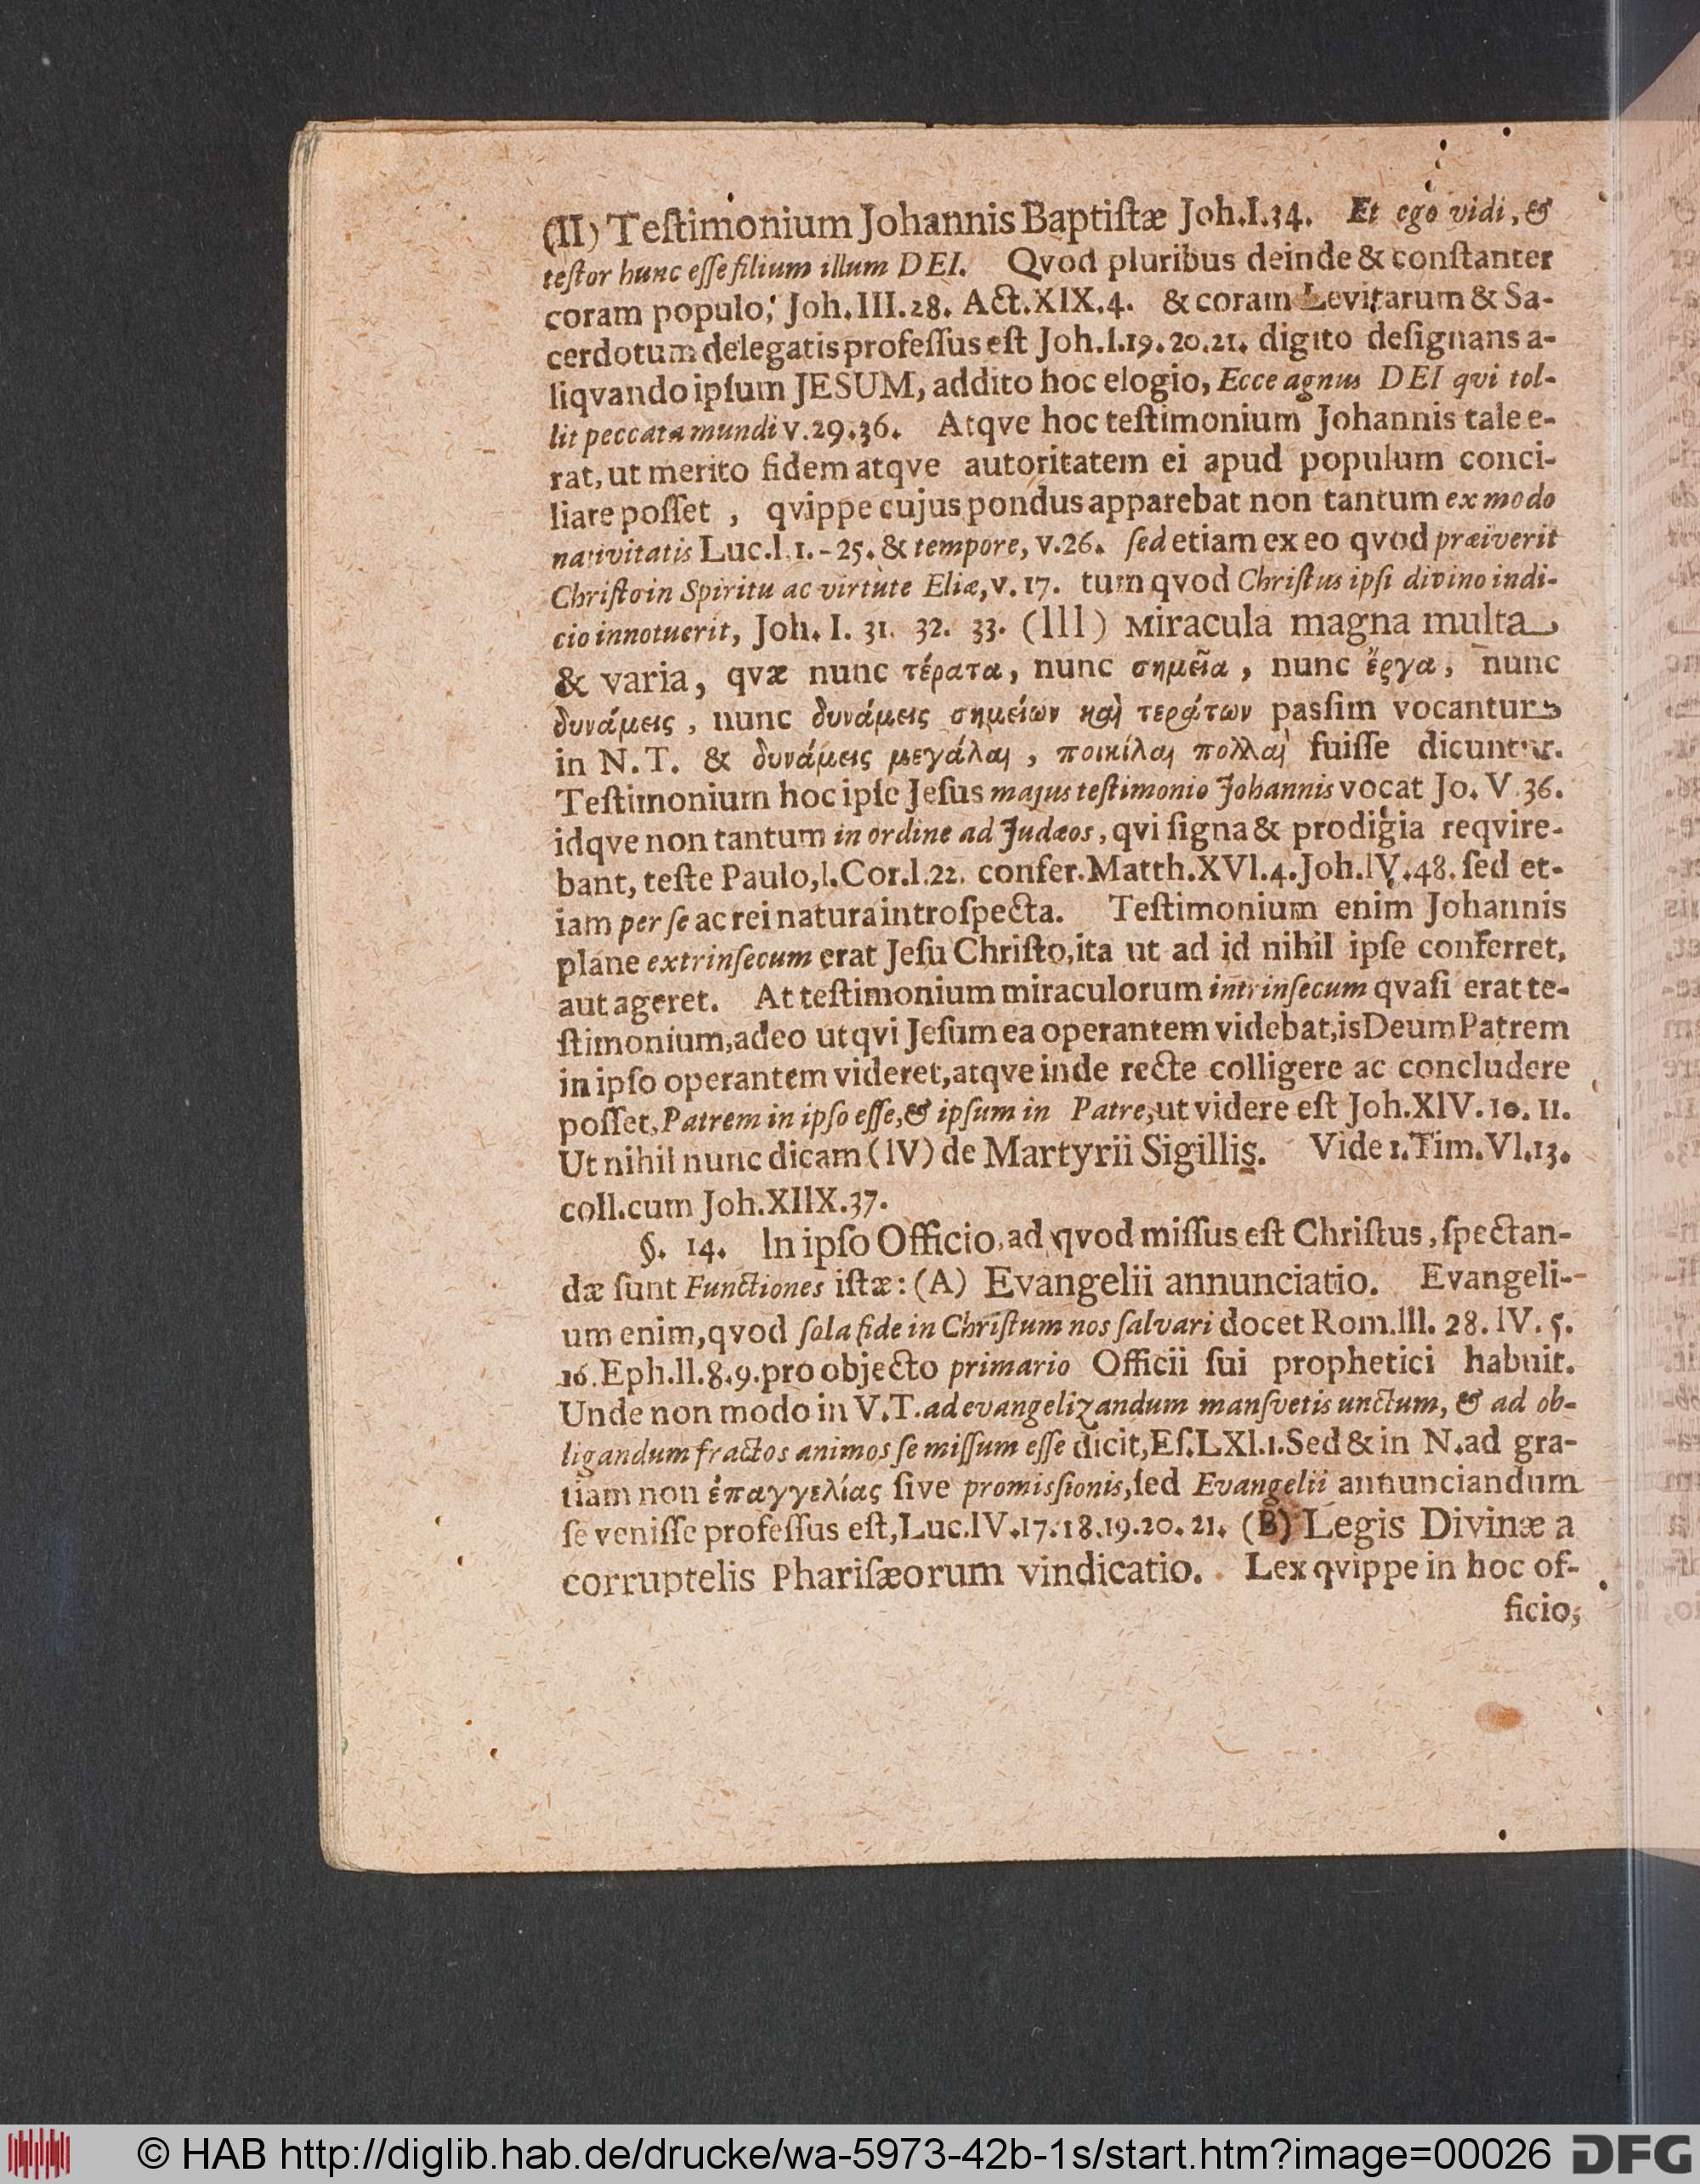 (II) Teſtimonium Johannis Baptiſtæ Joh.I.34. Et ego vidi, &
teſtor hunc eſſe filium illum DEI. Qvod pluribus deinde & conſtanter
coram populo, Joh.III.28. Act.XIX.4. & coram Levitarum & Sa-
cerdotum delegatis profeſſus eſt Joh.I.19.20.21. digito deſignans a-
liqvando ipſum JESUM, addito hoc elogio, Ecce agnus DEI qvi tol-
lit peccata mundi v.29.36. Atqve hoc teſtimonium Johannis tale e-
rat, ut merito fidem atqve autoritatem ei apud populum conci-
liare poſſet , qvippe cujus pondus apparebat non tantum ex modo
nativitatis Luc.I.1.-25. & tempore, v.26. ſed etiam ex eo qvod præiverit
Chriſto in Spiritu ac virtute Eliæ, v.17. tum qvod Chriſtus ipſi divino indi-
cio innotuerit, Joh. I. 31. 32. 33. (III) Miracula magna multa
& varia, qvæ nunc τέρατα, nunc σημεῖα, nunc ἔργα, nunc
δυνάμεις, nunc δυνάμεις σημείων καὶ τεράτων paſſim vocantur
in N.T. & δυνάμεις μεγάλαι, ποικίλαι πολλαὶ fuiſſe dicuntur.
Teſtimonium hoc ipſe Jeſus majus teſtimonio Johannis vocat Jo. V.36.
idqve non tantum in ordine ad Judæos, qvi ſigna & prodigia reqvire-
bant, teſte Paulo, I.Cor.I.22. confer.Matth.XVI.4.Joh.IV.48. ſed et-
iam per ſe ac rei natura introſpecta. Teſtimonium enim Johannis
plane extrinſecum erat Jeſu Chriſto, ita ut ad id nihil ipſe conferret,
aut ageret. At teſtimonium miraculorum intrinſecum qvaſi erat te-
ſtimonium, adeo ut qvi Jeſum ea operantem videbat, is Deum Patrem
in ipſo operantem videret, atqve inde recte colligere ac concludere
poſſet, Patrem in ipſo eſſe, & ipſum in Patre, ut videre eſt Joh.XIV.10.11.
Ut nihil nunc dicam (IV) de Martyrii Sigillis. Vide 1.Tim.VI.13.
coll.cum Joh.XIIX.37.
§. 14. In ipſo Officio, ad qvod miſſus eſt Chriſtus, ſpectan-
dæ ſunt Functiones iſtæ: (A) Evangelii annunciatio. Evangeli-
um enim, qvod ſola fide in Chriſtum nos ſalvari docet Rom.III. 28. IV. 5.
16. Eph.II.8.9. pro objecto primario Officii ſui prophetici habuit.
Unde non modo in V.T. ad evangelizandum manſvetis unctum, & ad ob-
ligandum fractos animos ſe miſſum eſſe dicit, Eſ.LXI.1. Sed & in N. ad gra-
tiam non ἐπαγγελίας ſive promiſſionis, ſed Evangelii annunciandum
ſe veniſſe profeſſus eſt, Luc.IV.17.18.19.20.21. (B) Legis Divinæ a
corruptelis Phariſæorum vindicatio. Lex qvippe in hoc of-
ficio,
© HAB http://diglib.hab.de/drucke/wa-5973-42b-1s/start.htm?image=00026 DFG